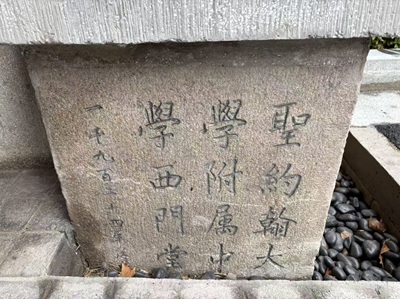 聖約翰大
學附属中
學西門堂
一千九百三十四年